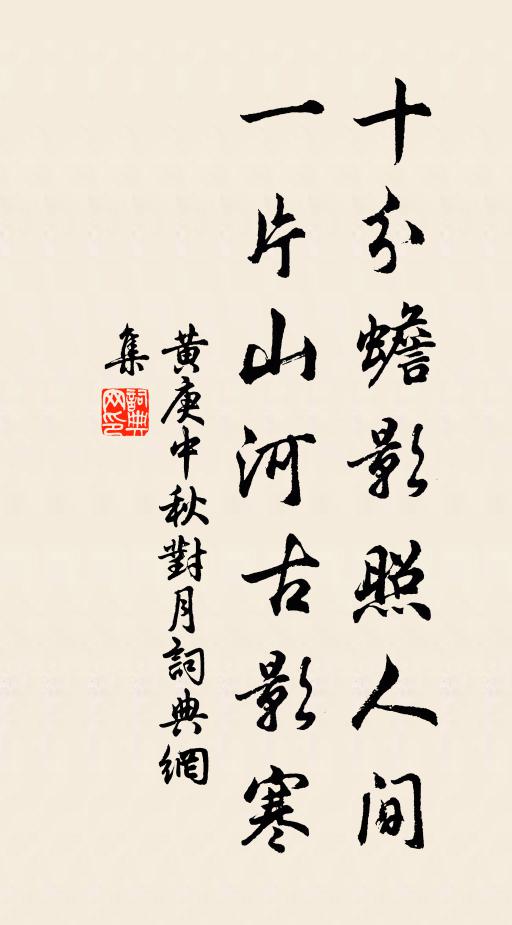 十分蟾影照人间
一片山河古影寒
黄庚中秋對月詞典網
集
詞典
网印